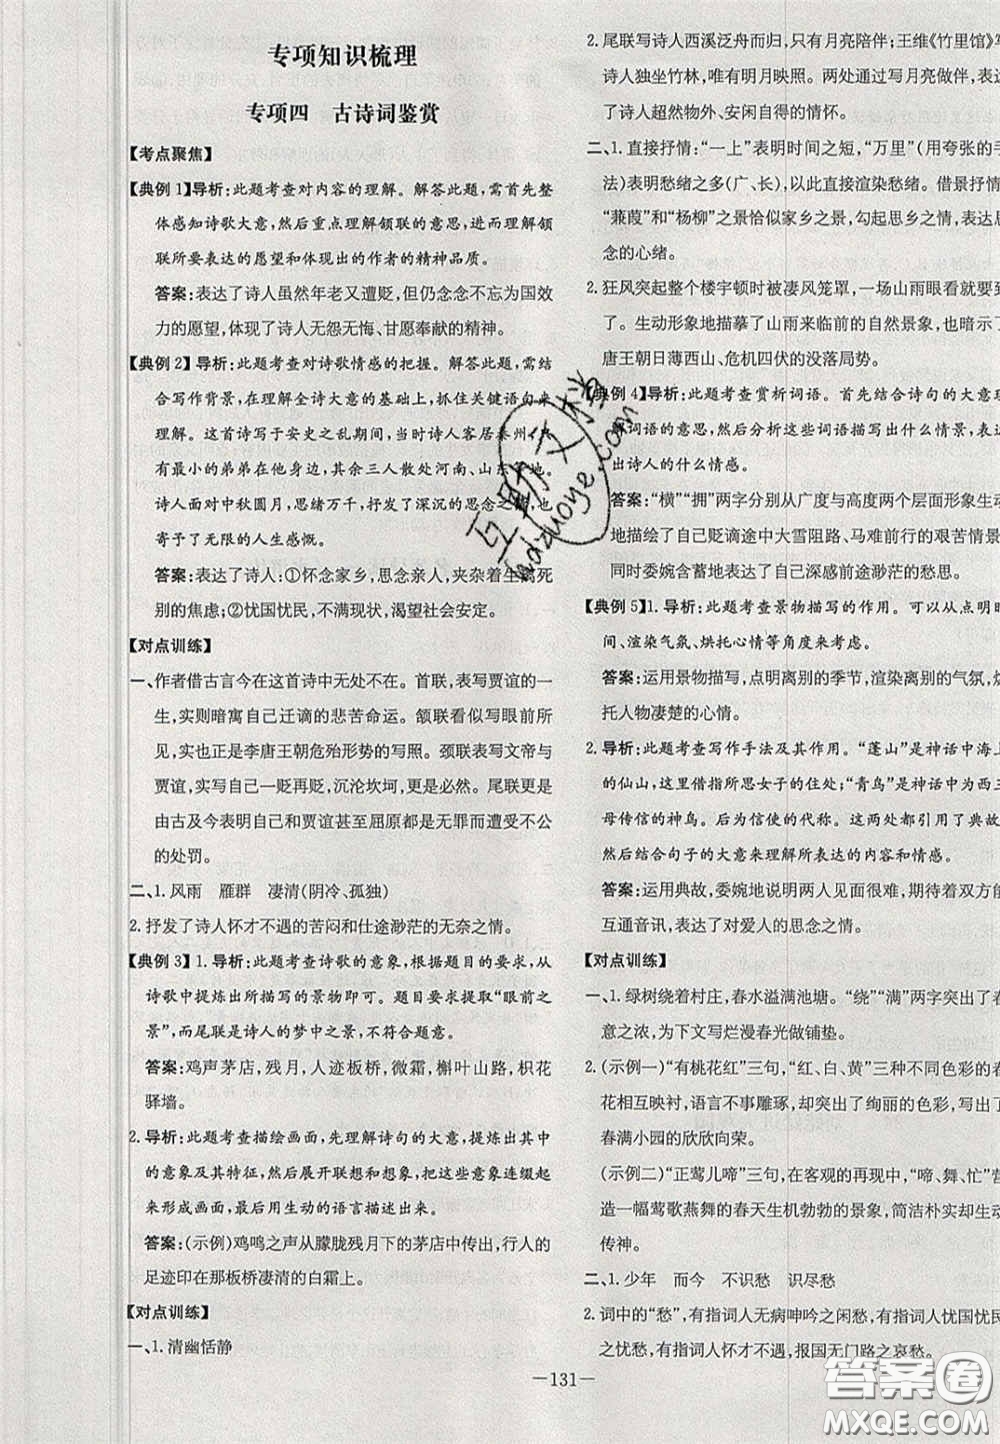 专项知识梳理
专项四 古诗词鉴赏
【考点聚焦】
【典例1】导析:此题考查对内容的理解。解答此题,需首先整
体感知诗歌大意,然后重点理解颔联的意思,进而理解颔
联所要表达的愿望和体现出的作者的精神品质。
答案:表达了诗人虽然年老又遭贬,但仍念念不忘为国效
力的愿望,体现了诗人无怨无悔、甘愿奉献的精神。
【典例2】导析:此题考查对诗歌情感的把握。解答此题,需结
合写作背景,在理解全诗大意的基础上,抓住关键语句来
理解。这首诗写于安史之乱期间,当时诗人客居秦州,
有最小的弟弟在他身边,其余三人散处河南、山东等地。
诗人面对中秋圆月,思绪万千,抒发了深沉的思念之
寄予了无限的人生感慨。
答案:表达了诗人:①怀念家乡,思念亲人,夹杂着生离死
别的焦虑;②忧国忧民,不满现状,渴望社会安定。
【对点训练】
一、作者借古言今在这首诗中无处不在。首联,表写贾谊的一
生,实则暗寓自己迁谪的悲苦命运。颔联看似写眼前所
见,实也正是李唐王朝危殆形势的写照。颈联表写文帝与
贾谊,实写自己一贬再贬,沉沦坎坷,更是必然。尾联更是
由古及今表明自己和贾谊甚至屈原都是无罪而遭受不公
的处罚。
二、1.风雨 雁群 凄清(阴冷、孤独)
2.抒发了诗人怀才不遇的苦闷和仕途渺茫的无奈之情。
【典例3】1.导析:此题考查诗歌的意象,根据题目的要求,从
诗歌中提炼出所描写的景物即可。题目要求提取“眼前之
景”,而尾联是诗人的梦中之景,不符合题意。
答案:鸡声茅店,残月,人迹板桥,微霜,槲叶山路,枳花
驿墙。
2.导析:此题考查描绘画面,先理解诗句的大意,提炼出其中
的意象及其特征,然后展开联想和想象,把这些意象连缀起
来,最后用生动的语言描述出来。
答案:(示例)鸡鸣之声从朦胧残月下的茅店中传出,行人的
足迹印在那板桥凄清的白霜上。
【对点训练】
一、1.清幽恬静
2.尾联写诗人西溪泛舟而归,只有月亮陪伴;王维《竹里馆》写
诗人独坐竹林,唯有明月映照。两处通过写月亮做伴,表达
了诗人超然物外、安闲自得的情怀。
二、1.直接抒情:“一上”表明时间之短,“万里”(用夸张的手
法)表明愁绪之多(广、长),以此直接渲染愁绪。借景抒情:
“蒹葭”和“杨柳”之景恰似家乡之景,勾起思乡之情,表达
念的心绪。
2.狂风突起整个楼宇顿时被凄风笼罩,一场山雨眼看就要到
了。生动形象地描摹了山雨来临前的自然景象,也暗示了
唐王朝日薄西山、危机四伏的没落局势。
【典例4】导析:此题考查赏析词语。首先结合诗句的大意理
解词语的意思,然后分析这些词语描写出什么情景,表
出诗人的什么情感。
答案:“横”“拥”两字分别从广度与高度两个层面形象生动
地描绘了自己贬谪途中大雪阻路、马难前行的艰苦情景
同时委婉含蓄地表达了自己深感前途渺茫的愁思。
【典例5】1.导析:此题考查景物描写的作用。可以从点明
间、渲染气氛、烘托心情等角度来考虑。
答案:运用景物描写,点明离别的季节,渲染离别的气氛,烘
托人物凄楚的心情。
2.导析:此题考查写作手法及其作用。“蓬山”是神话中海上
的仙山,这里借指所思女子的住处;“青鸟”是神话中为西王
母传信的神鸟。后为信使的代称。这两处都引用了典故
然后结合句子的大意来理解所表达的内容和情感。
答案:运用典故,委婉地说明两人见面很难,期待着双方能
互通音讯,表达了对爱人的思念之情。
【对点训练】
一、1.绿树绕着村庄,春水溢满池塘。“绕”“满”两字突出了春
意之浓,为下文写烂漫春光做铺垫。
2.(示例一)“有桃花红”三句,“红、白、黄”三种不同色彩的春
花相互映衬,语言不事雕琢,却突出了绚丽的色彩,呈现
春满小园的欣欣向荣。
(示例二)“正莺儿啼”三句,在客观的再现中,“啼、舞、忙”营
造一幅莺歌燕舞的春天生机勃勃的景象,简洁朴实却生动
传神。
二、1.少年 而今 不识愁 识尽愁
2.词中的“愁”,有指词人无病呻吟之闲愁,有指词人忧国忧民
之忧愁,有指词人怀才不遇、报国无门路之哀愁。
—131—
互助文档
hdzuoye.com
答案圈
MXQE.COM